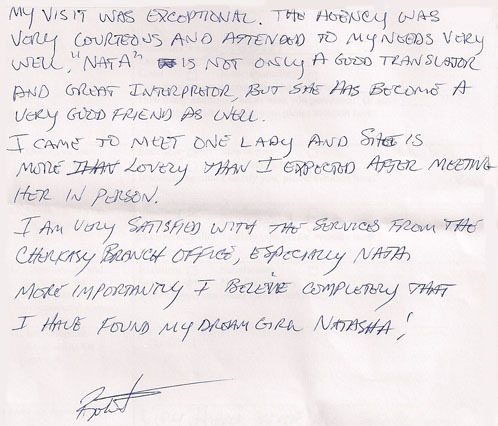 MY VISIT WAS EXCEPTIONAL. THE AGENCY WAS
VERY COURTEOUS AND ATTENDED TO MY NEEDS VERY
WELL, "NATA" IS NOT ONLY A GOOD TRANSLATOR
AND GREAT INTERPRETOR, BUT SHE HAS BECOME A
VERY GOOD FRIEND AS WELL.
I CAME TO MEET ONE LADY AND SHE IS
MORE THAN LOVELY THAN I EXPECTED AFTER MEETING
HER IN PERSON.
I AM VERY SATISFIED WITH THE SERVICES FROM THE
CHERKASY BRANCH OFFICE, ESPECIALLY NATA.
MORE IMPORTANTLY I BELEIVE COMPLETELY THAT
I HAVE FOUND MY DREAM GIRL NATASHA!